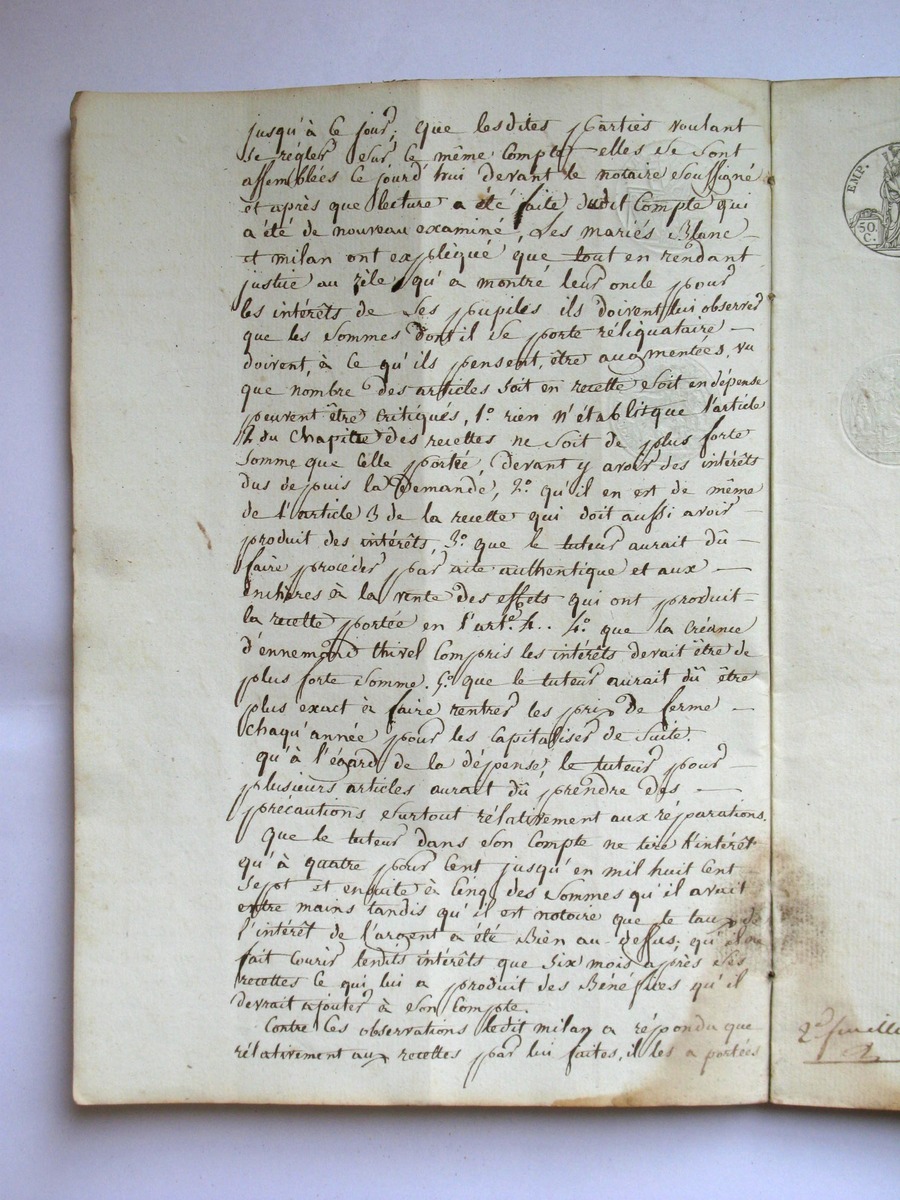 jusqu'à ce jour; que lesdites parties voulant
se régler sur ce même compte elles se sont
assemblées ce jourd'hui devant le notaire soussigné
et après que lecture a été faite dudit compte qui
a été de nouveau examiné, Les mariés Blanc —
et milan ont expliqué que tout en rendant
justice au zèle qu'a montré leur oncle pour
les intérêts de ses pupiles ils doivent lui observer
que les sommes dont il se porte réliquataire —
doivent, à ce qu'ils pensent, être augmentées, vu
que nombre des articles soit en recette soit en dépense
peuvent être critiqués, 1.° rien n'établit que l'article
2 du chapitre des recettes ne soit de plus forte
somme que celle portée, devant y avoir des intérêts
dus depuis la demande, 2.° qu'il en est de même
de l'article 3 de la recette qui doit aussi avoir —
produit des intérêts, 3.° que le tuteur aurait dû —
faire procéder par acte authentique et aux —
enchères à la vente des effets qui ont produit —
la recette portée en l'art.e 4.. 4.° que la créance
d'ennemond thivel compris les intérêts devait être de
plus forte somme. 5.° que le tuteur aurait dû être
plus exact à faire rentrer les prix de ferme —
chaqu'année pour les capitaliser de suite.
qu'à l'égard de la dépense, le tuteur pour —
plusieurs articles aurait dû prendre des —
précautions surtout rélativement aux réparations.
Que le tuteur dans son compte ne tire l'intérêt
qu'à quatre pour cent jusqu'en mil huit cent —
sept et ensuite à cinq des sommes qu'il avait
entre mains tandis qu'il est notoire que le taux de
l'intérêt de l'argent a été bien au-dessus; qu'il ne
fait courir lesdits intérêts que six mois après ses
recettes ce qui lui a produit des bénéfices qu'il
devrait ajouter à son compte.
Contre ces observations ledit milan a répondu que
rélativement aux recettes par lui faites, il les a portées
EMP.
50.
C.
2.e feuille